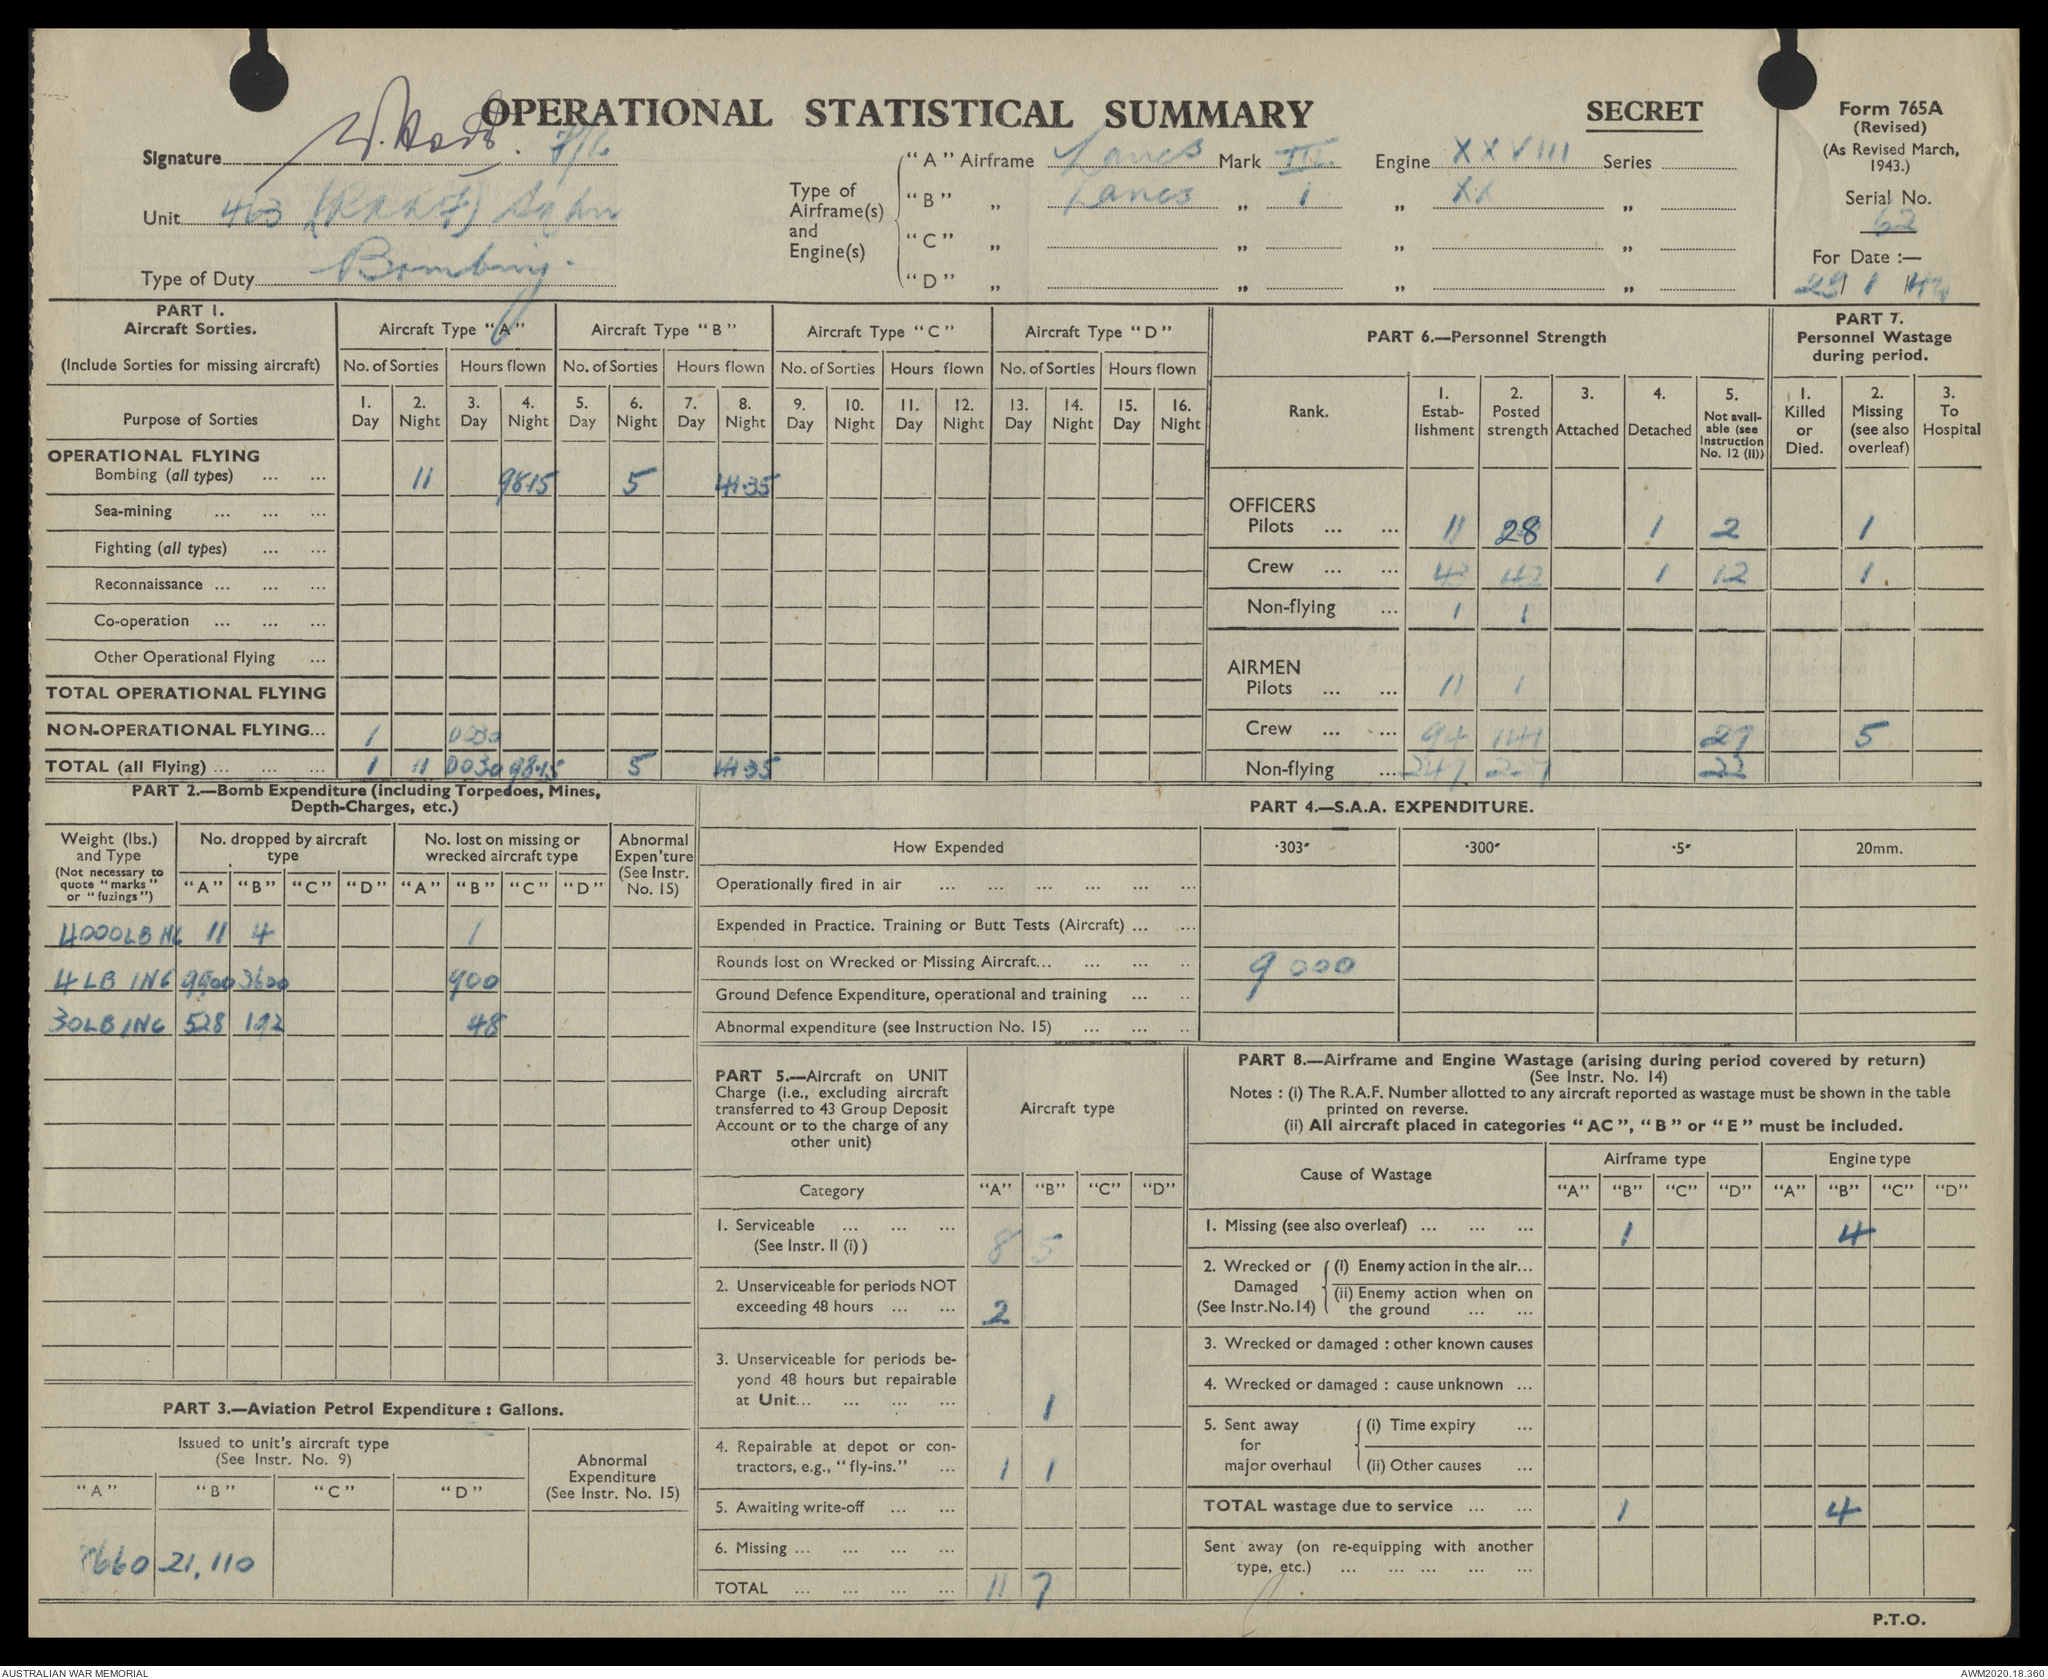 OPERATIONAL STATISTICAL SUMMARY
SECRET
Form 765A
(Revised)
(As Revised March,
1943.)
Serial No.
62
For Date :—
29 1 44
Signature F/L
Unit 463 (RAAF) Sqdn
Type of Duty Bombing.
Type of
Airframe(s)
and
Engine(s)
"A" Airframe Lancs Mark III. Engine XXVIII Series
"B" „ Lancs „ 1 „ XX „
"C" „ „ „ „
"D" „ „ „ „
PART 1.
Aircraft Sorties.
(Include Sorties for missing aircraft)
Aircraft Type "A" Aircraft Type "B" Aircraft Type "C" Aircraft Type "D"
No. of Sorties Hours flown No. of Sorties Hours flown No. of Sorties Hours flown No. of Sorties Hours flown
Purpose of Sorties
1. 2. 3. 4. 5. 6. 7. 8. 9. 10. 11. 12. 13. 14. 15. 16.
Day Night Day Night Day Night Day Night Day Night Day Night Day Night Day Night
OPERATIONAL FLYING
Bombing (all types) ... ... 11 98.15 5 41.35
Sea-mining ... ... ...
Fighting (all types) ... ...
Reconnaissance ... ... ...
Co-operation ... ... ...
Other Operational Flying ...
TOTAL OPERATIONAL FLYING
NON-OPERATIONAL FLYING... 1 0030
TOTAL (all Flying) ... ... ... 1 11 0030 98.15 5 41.35
PART 6.—Personnel Strength
Rank.
1. Estab-lishment
2. Posted strength
3. Attached
4. Detached
5. Not avail-able (see Instruction No. 12 (II))
PART 7.
Personnel Wastage
during period.
1. Killed or Died.
2. Missing (see also overleaf)
3. To Hospital
OFFICERS
Pilots ... ... 11 28 1 2 1
Crew ... ... 43 42 1 12 1.
Non-flying ... 1 1
AIRMEN
Pilots ... ... 11 1
Crew ... ... 94 141 27 5
Non-flying ... 247 22
PART 2.—Bomb Expenditure (including Torpedoes, Mines,
Depth-Charges, etc.)
Weight (lbs.)
and Type
(Not necessary to
quote "marks"
or "fuzings")
No. dropped by aircraft
type
No. lost on missing or
wrecked aircraft type
Abnormal
Expen'ture
(See Instr.
No. 15)
"A" "B" "C" "D" "A" "B" "C" "D"
4000LB HC 11 4 1
4 LB INC 9900 3600 900
30LB INC 528 192 48
PART 3.—Aviation Petrol Expenditure : Gallons.
Issued to unit's aircraft type
(See Instr. No. 9)
Abnormal
Expenditure
(See Instr. No. 15)
"A" "B" "C" "D"
21,110
PART 4.—S.A.A. EXPENDITURE.
How Expended ·303″ ·300″ ·5″ 20mm.
Operationally fired in air ... ... ... ... ... ...
Expended in Practice. Training or Butt Tests (Aircraft) ... ...
Rounds lost on Wrecked or Missing Aircraft... ... ... .. 9000
Ground Defence Expenditure, operational and training ... ..
Abnormal expenditure (see Instruction No. 15) ... ... ..
PART 5.—Aircraft on UNIT
Charge (i.e., excluding aircraft
transferred to 43 Group Deposit
Account or to the charge of any
other unit)
Aircraft type
Category "A" "B" "C" "D"
1. Serviceable ... ... ...
(See Instr. II (i) ) 8 5
2. Unserviceable for periods NOT
exceeding 48 hours ... ... 2
3. Unserviceable for periods be-
yond 48 hours but repairable
at Unit... ... ... ... 1
4. Repairable at depot or con-
tractors, e.g., "fly-ins." ... 1 1
5. Awaiting write-off ... ...
6. Missing ... ... ... ...
TOTAL ... ... ... ... 11 7
PART 8.—Airframe and Engine Wastage (arising during period covered by return)
(See Instr. No. 14)
Notes : (i) The R.A.F. Number allotted to any aircraft reported as wastage must be shown in the table
printed on reverse.
(ii) All aircraft placed in categories "AC", "B" or "E" must be included.
Cause of Wastage
Airframe type Engine type
"A" "B" "C" "D" "A" "B" "C" "D"
1. Missing (see also overleaf) ... ... ... 1 4
2. Wrecked or
Damaged
(See Instr.No.14)
(i) Enemy action in the air...
(ii) Enemy action when on
the ground ... ...
3. Wrecked or damaged : other known causes
4. Wrecked or damaged : cause unknown ...
5. Sent away
for
major overhaul
(i) Time expiry ...
(ii) Other causes ...
TOTAL wastage due to service ... ... 1 4
Sent away (on re-equipping with another
type, etc.) ... ... ... ... ...
P.T.O.
AUSTRALIAN WAR MEMORIAL
AWM2020.18.360